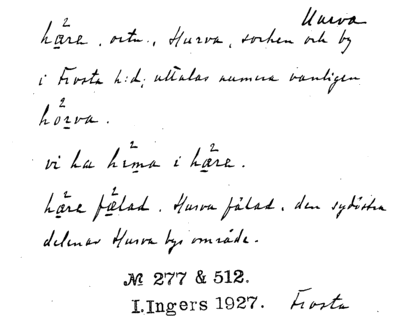 Hurva
hära, ortn., Hurva, socken och by
i Frosta h:d; uttalas numera vanligen
horva.
vi ha hima i hära.
hära fälad. Hurva fälad, den sydöstra
delen av Hurva bys område.
№ 277 & 512.
I. Ingers 1927. Frosta